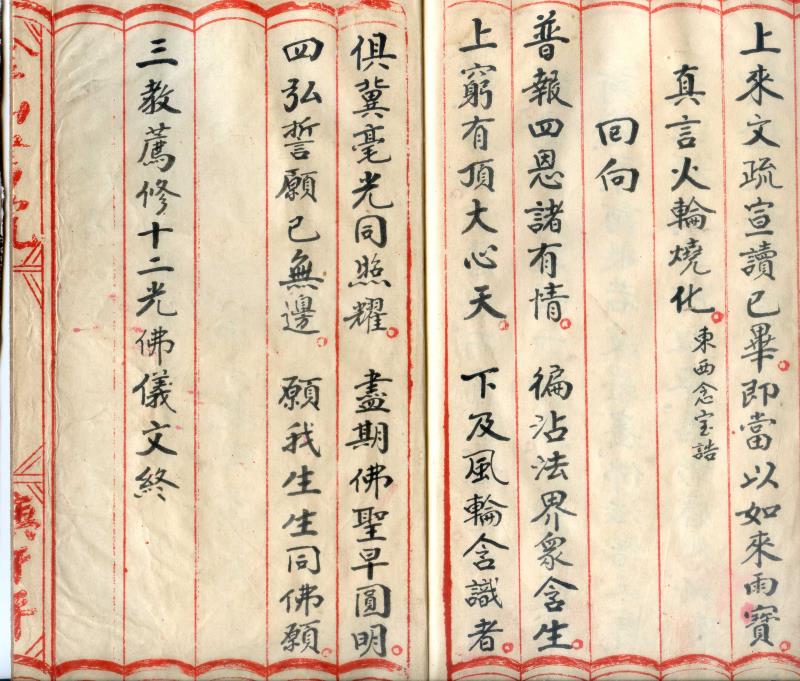 上來文疏宣讀已畢。即當以如來雨寶。
真言火輪燒化。東西念宝誥
回向
普報四恩諸有情。徧沾法界衆含生。
上窮有頂大心天。下及風輪含識者。
俱冀毫光同照耀。盡期佛聖早圓明。
四弘誓願已無邊。願我生生同佛願。
三教薦修十二光佛儀文終